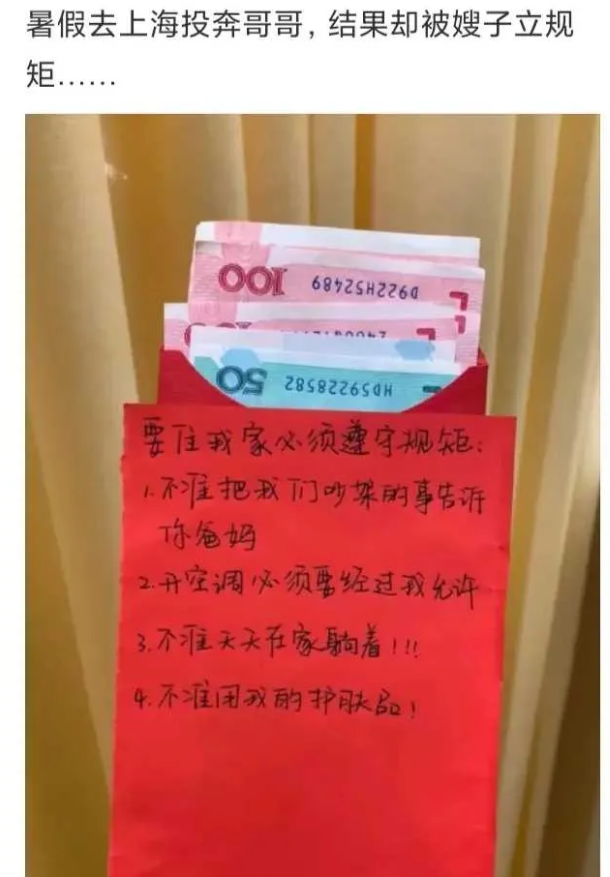 暑假去上海投奔哥哥，结果却被嫂子立规
矩……
100
D922H52489
50
HD59228582
要住我家必须遵守规矩：
1.不准把我们吵架的事告诉
你爸妈
2.开空调必须要经过我允许
3.不准天天在家躺着!!!
4.不准用我的护肤品!